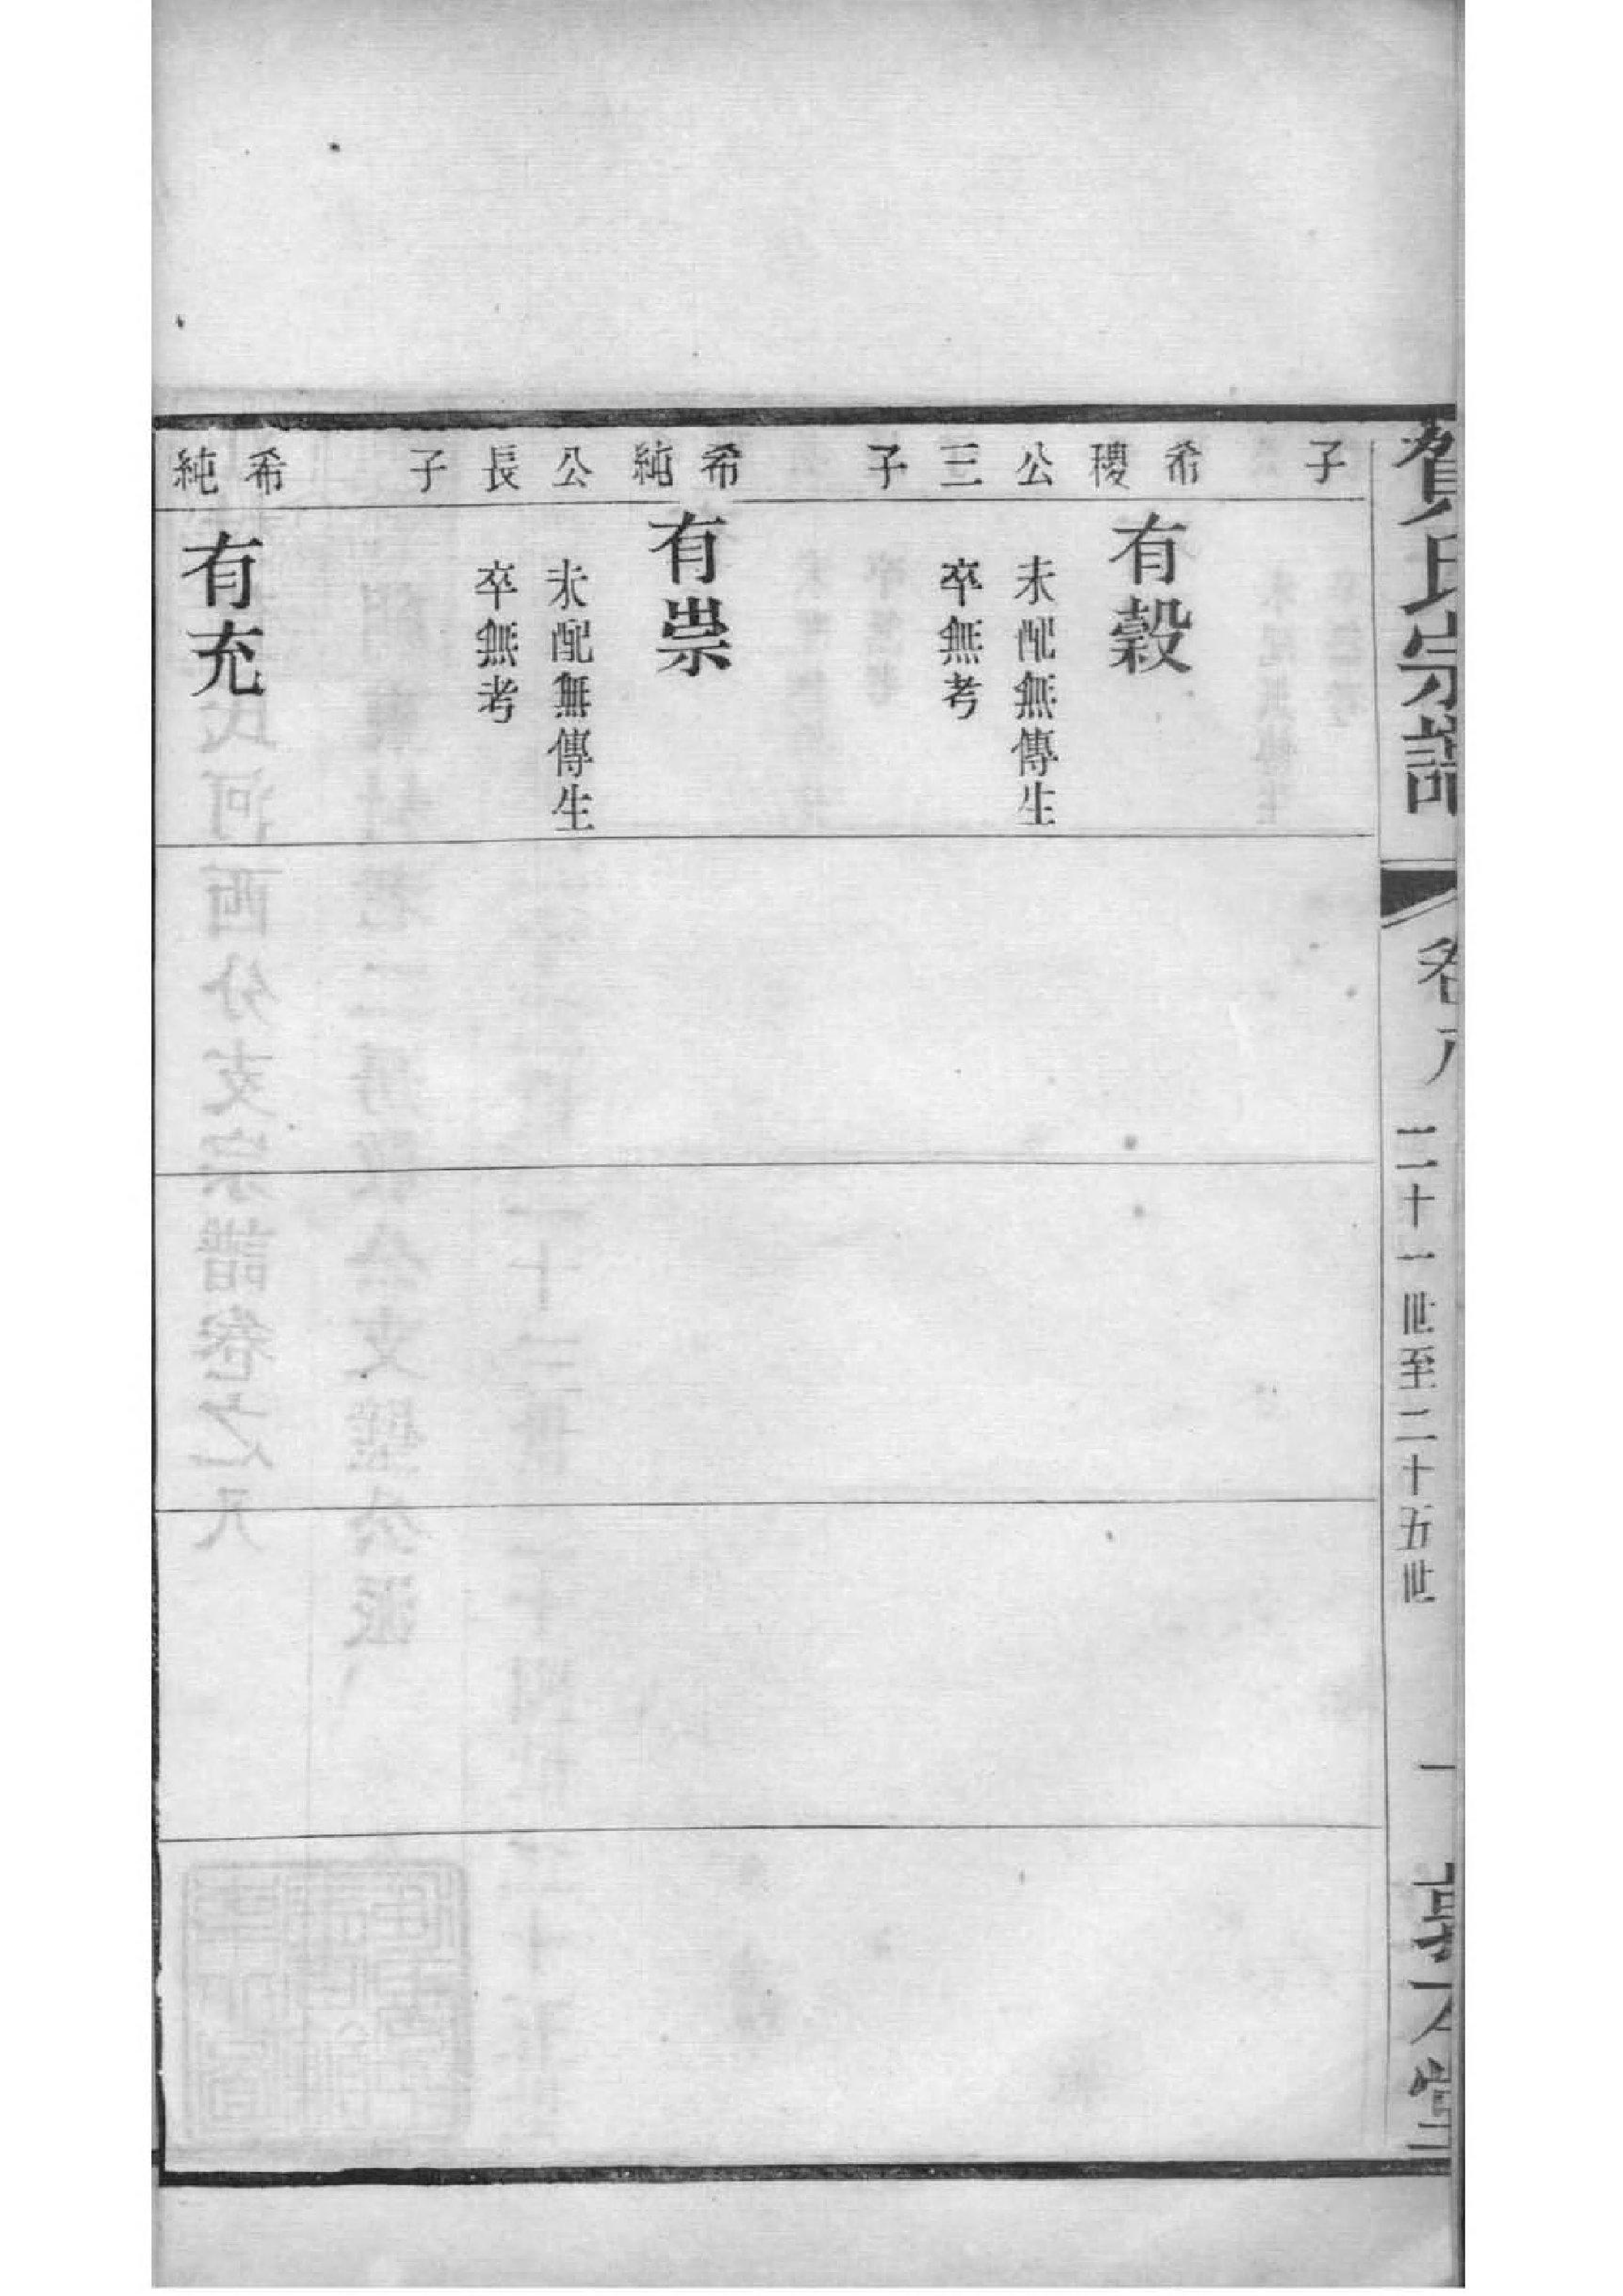 賀氏宗譜
卷八
二十一世至二十五世
一
堂
子
希
稷 有穀
公 未配無傳生
三 卒無考
子
希
純 有祟
公 未配無傳生
長 卒無考
子
希
純 有充